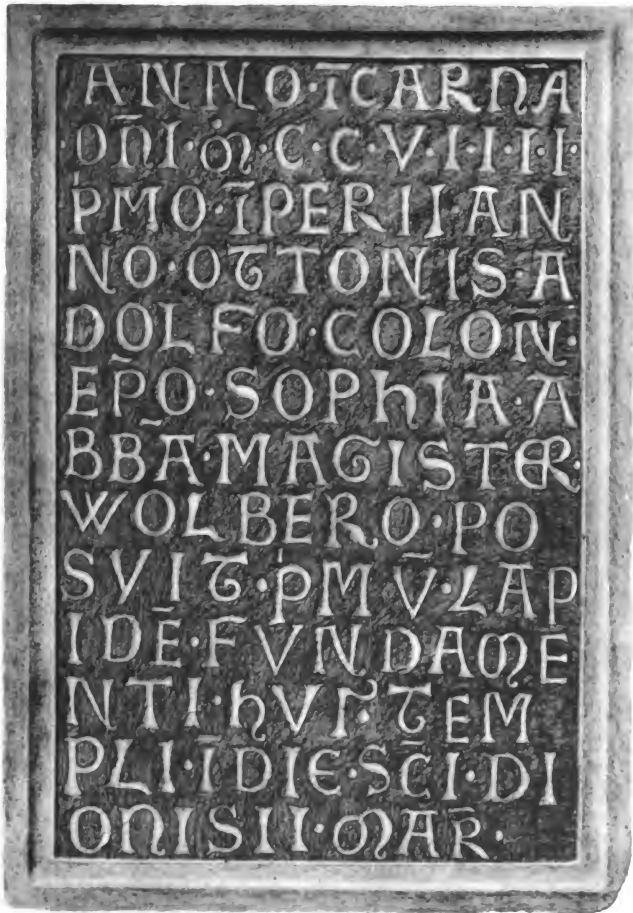 ANNO·ĪCARNĀ
·DN̄I·M̊·C·C·V·I·I·I·I·
PͥMO·ĪPERII·AN
NO·OTTONIS·A
DOLFO·COLON̄·
EP̄O·SOPHIA·A
BBA̅·MAGISTER·
WOLBERO·PO
SVIT·PͥMV̄·LAP
IDĒ·FVNDAME
NTI·hVI᾿·TEM
PLI·ĪDIE·SC̄I·DI
ONISII·MAR̄·